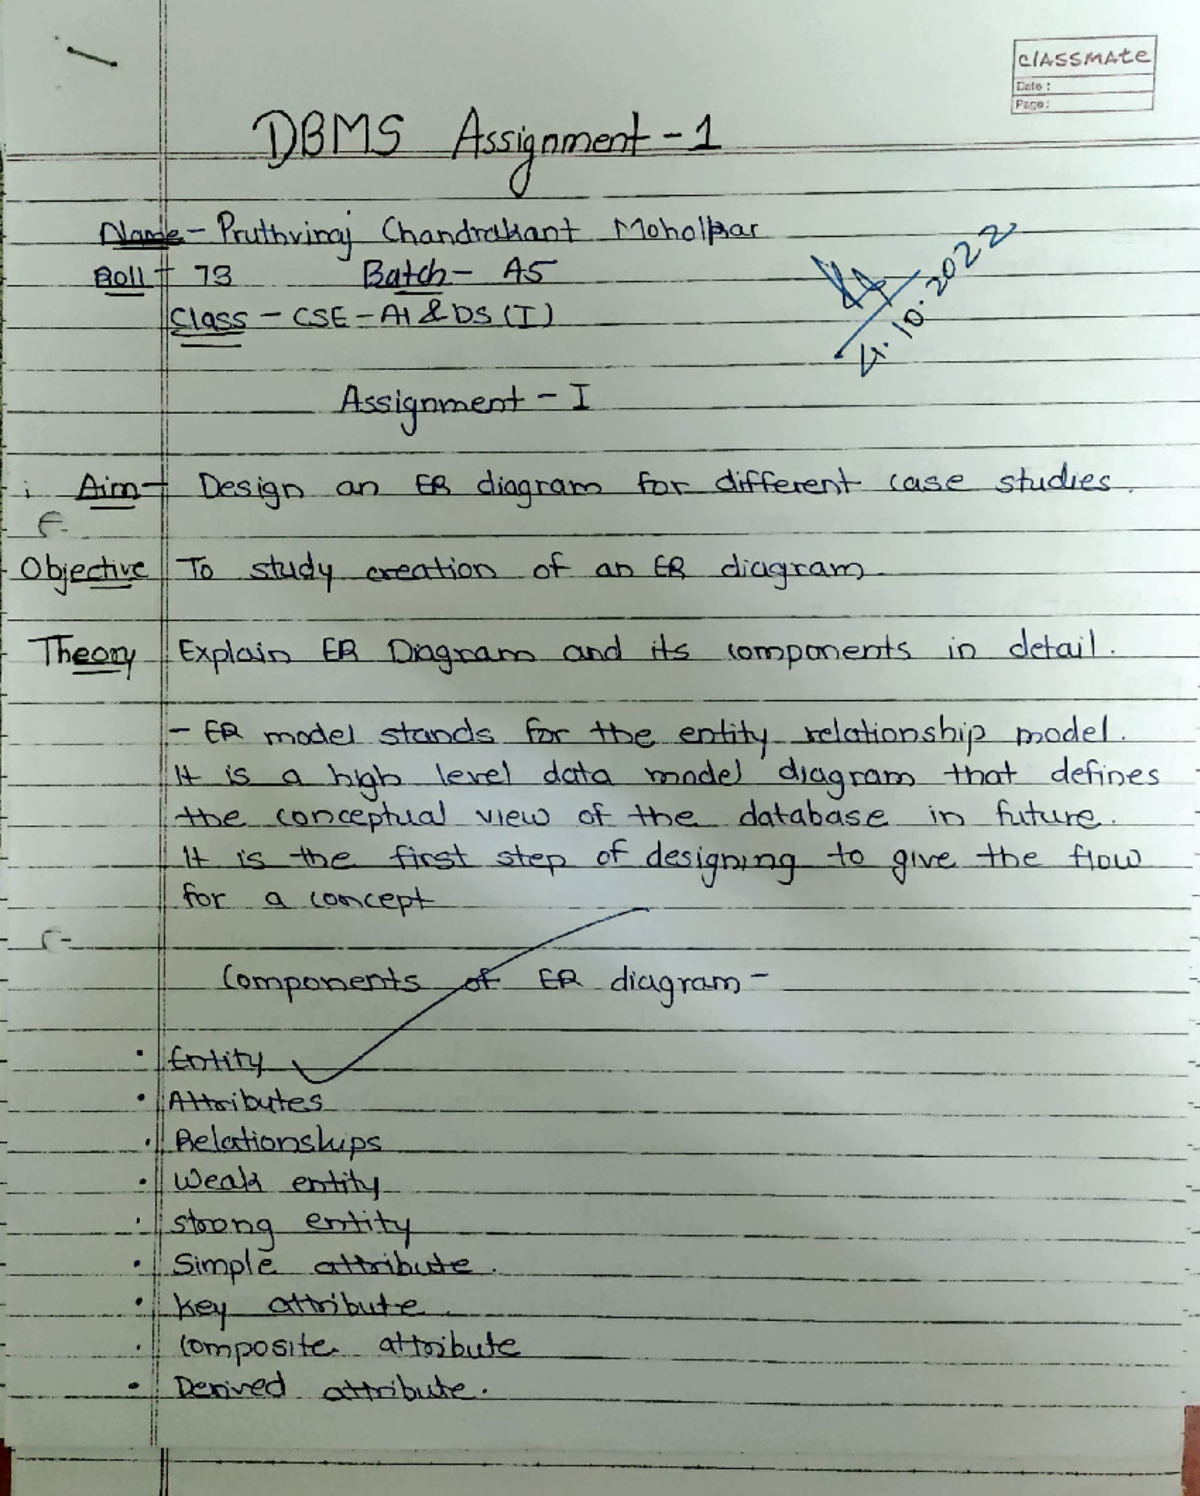 classmate
Date :
Page :
DBMS Assignment - 1
Name - Pruthviraj Chandrakant Moholkar
Roll - 73 Batch - A5
Class - CSE - AI & DS (I)
4.10.2022
Assignment - I
Aim - Design an ER diagram for different case studies.
Objective To study creation of an ER diagram.
Theory Explain ER Diagram and its components in detail.
- ER model stands for the entity relationship model.
It is a high level data model diagram that defines
the conceptual view of the database in future.
It is the first step of designing to give the flow
for a concept
Components of ER diagram -
• Entity
• Attributes
• Relationships
• Weak entity
• strong entity
• Simple attribute.
• Key attribute.
• Composite attribute
• Derived attribute.